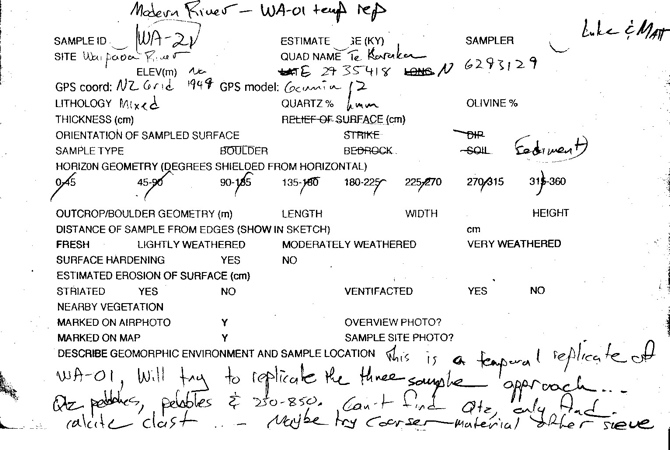 Modern River - WA-01 temp rep
SAMPLE ID WA-21 ESTIMATE GE (KY) SAMPLER Luke & Matt
SITE Waipaoa River QUAD NAME Te Karaka
ELEV(m) Na LATE 2935418 LONG N 6293129
GPS coord: NZ Grid 1949 GPS model: Garmin 12
LITHOLOGY Mixed QUARTZ % hmm OLIVINE %
THICKNESS (cm) RELIEF OF SURFACE (cm)
ORIENTATION OF SAMPLED SURFACE STRIKE DIP
SAMPLE TYPE BOULDER BEDROCK SOIL Sediment
HORIZON GEOMETRY (DEGREES SHIELDED FROM HORIZONTAL)
0-45 45-90 90-135 135-180 180-225 225-270 270-315 315-360
OUTCROP/BOULDER GEOMETRY (m) LENGTH WIDTH HEIGHT
DISTANCE OF SAMPLE FROM EDGES (SHOW IN SKETCH) cm
FRESH LIGHTLY WEATHERED MODERATELY WEATHERED VERY WEATHERED
SURFACE HARDENING YES NO
ESTIMATED EROSION OF SURFACE (cm)
STRIATED YES NO VENTIFACTED YES NO
NEARBY VEGETATION
MARKED ON AIRPHOTO Y OVERVIEW PHOTO?
MARKED ON MAP Y SAMPLE SITE PHOTO?
DESCRIBE GEOMORPHIC ENVIRONMENT AND SAMPLE LOCATION This is a temporal replicate of
WA-01, Will try to replicate the three sample approach...
Qtz pebbles, pebbles & 250-850. Can't find Qtz, only find
calcite clast ... - Maybe try coarser material after sieve